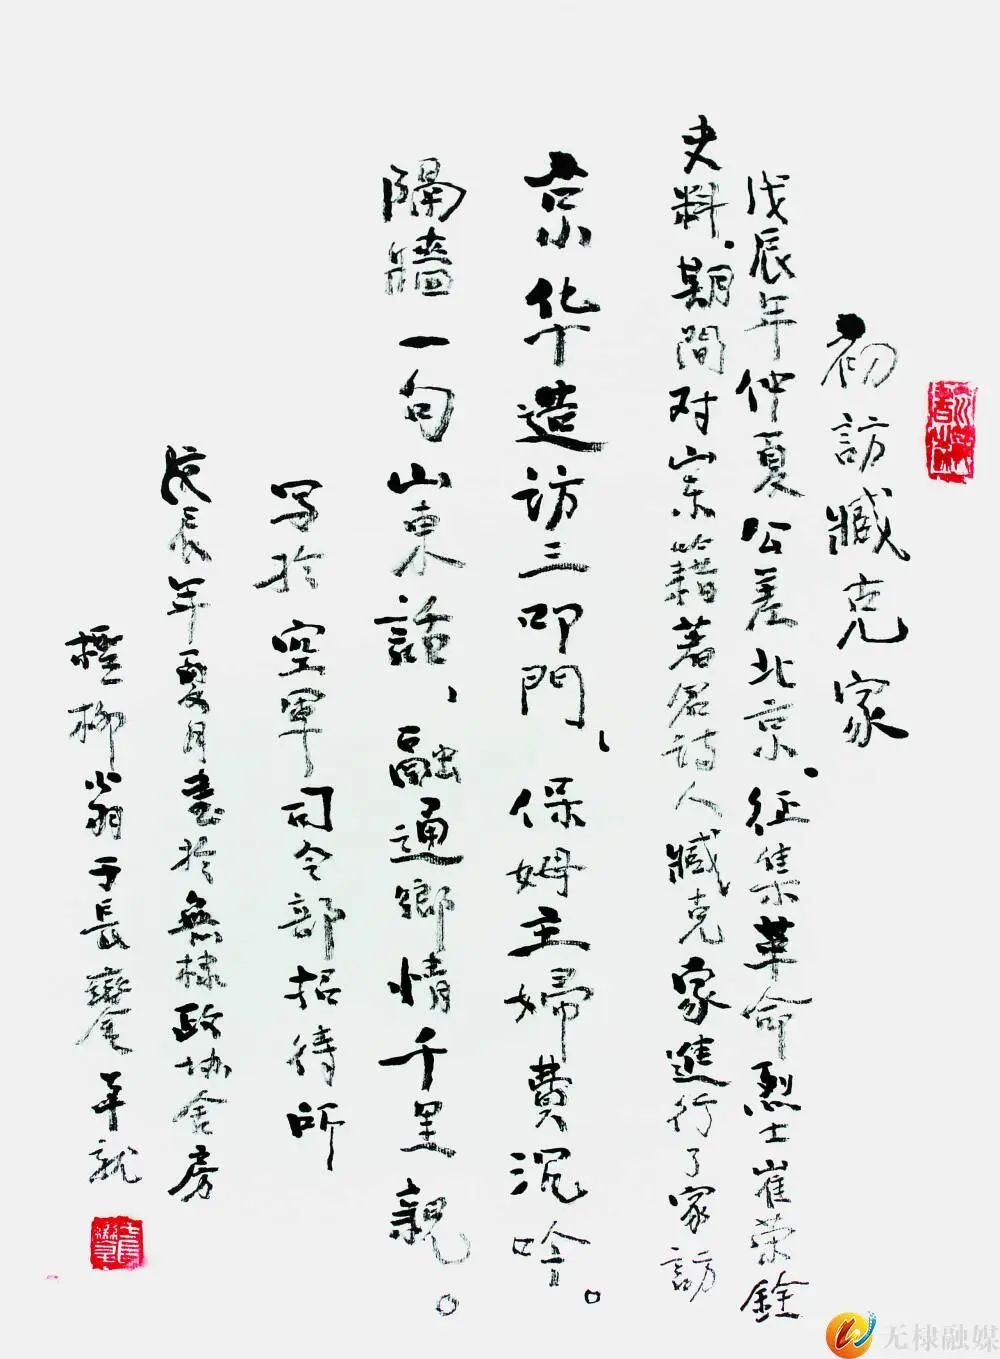 初訪臧克家
戊辰年仲夏公差北京.征集革命烈士崔荣銓
史料.期間对山东籍著名詩人臧克家進行了家訪
京华造訪三叩門、保姆主婦費沉吟。
隔牆一句山東話、融通鄉情千里親。
写於空軍司令部招待所
戊辰年夏月書於無棣政协舍房
檉柳翁于長鑾草就
无棣融媒